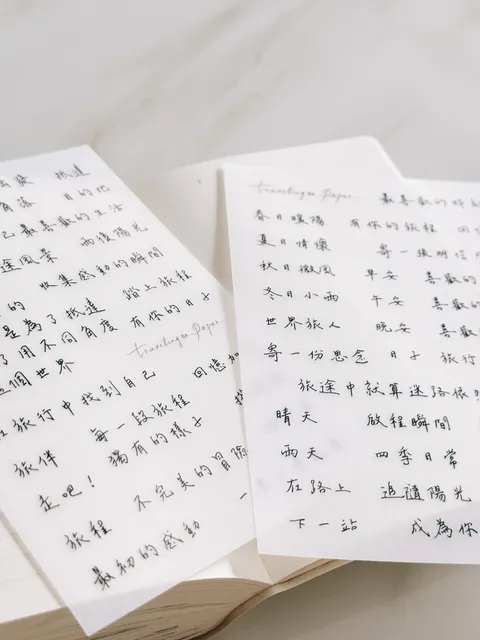 出發 抵達
目的地
己最喜歡的生活
途風景 雨後陽光
收集感動的瞬間
是為了抵達 踏上旅程
了用不同角度 有你的日子
這個世界
Travelingee Paper
在旅行中找到自己 回憶
旅伴 每一段旅程
走吧! 獨有的樣子
旅程 不完美的冒險
最初的感動
Travelingee Paper 最喜歡的時
春日暖陽 有你的旅程 回
夏日情懷 寄一張明信
秋日微風 早安 喜歡的
冬日小雨 午安 喜歡
世界旅人 晚安 喜歡
寄一份思念 日子 旅行
旅途中就算迷路很
晴天 啟程瞬間
雨天 四季日常
在路上 追隨陽光
下一站 成為你